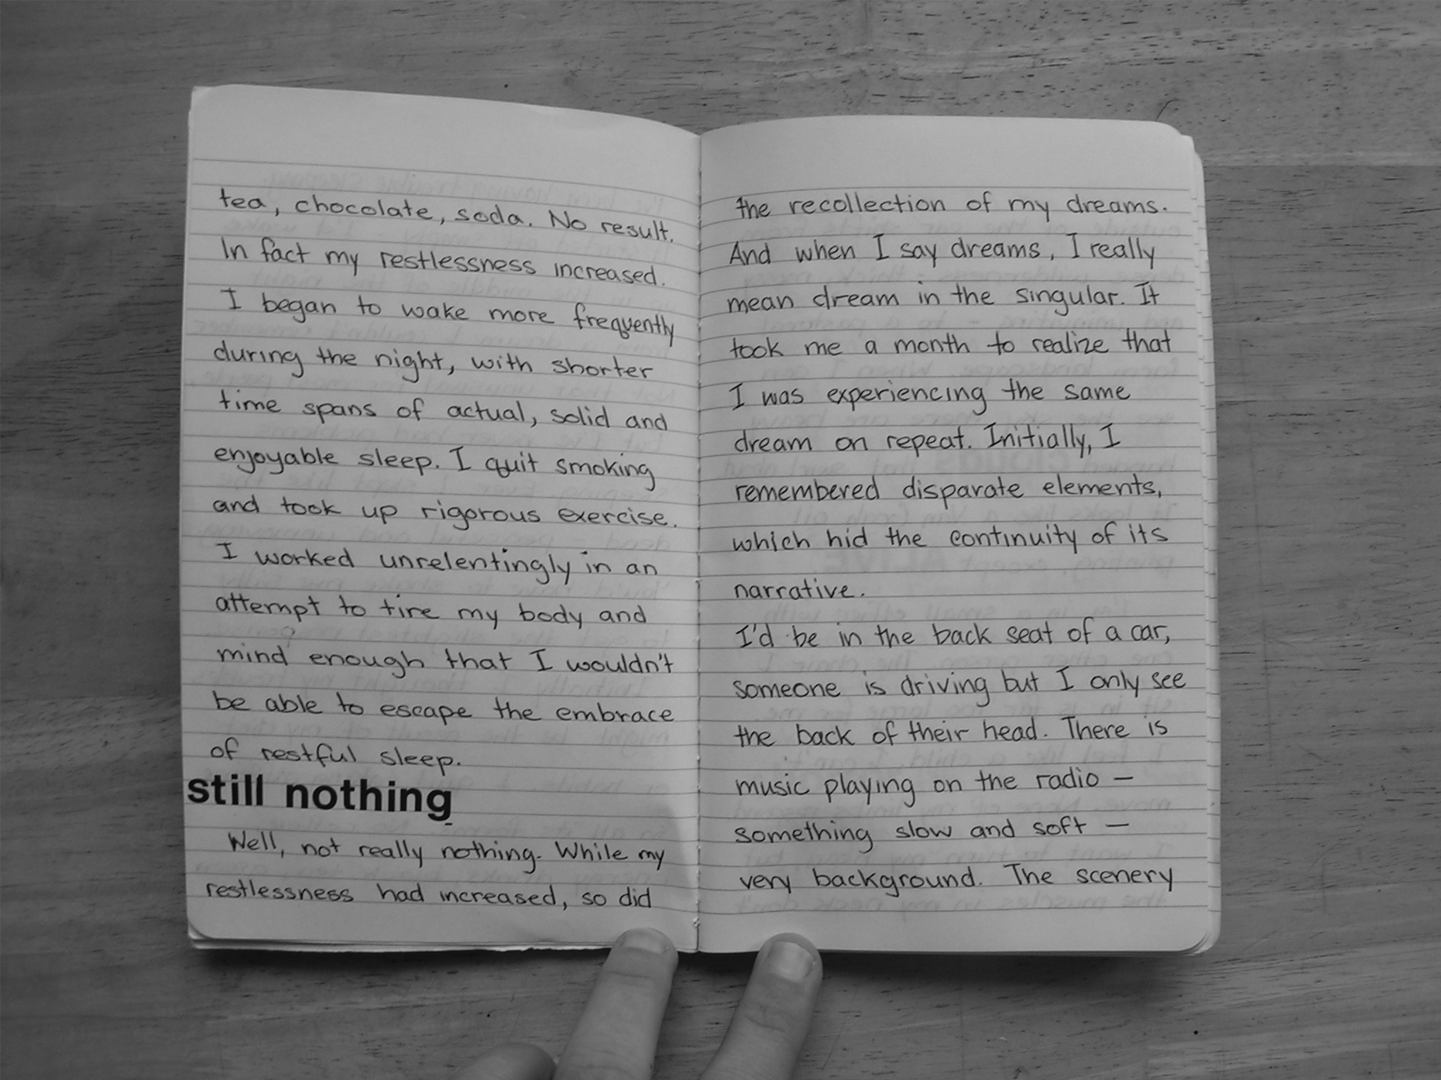 tea, chocolate, soda. No result.
In fact my restlessness increased.
I began to wake more frequently
during the night, with shorter
time spans of actual, solid and
enjoyable sleep. I quit smoking
and took up rigorous exercise.
I worked unrelentingly in an
attempt to tire my body and
mind enough that I wouldn't
be able to escape the embrace
of restful sleep.
still nothing
Well, not really nothing. While my
restlessness had increased, so did
the recollection of my dreams.
And when I say dreams, I really
mean dream in the singular. It
took me a month to realize that
I was experiencing the same
dream on repeat. Initially, I
remembered disparate elements,
which hid the continuity of its
narrative.
I'd be in the back seat of a car,
someone is driving but I only see
the back of their head. There is
music playing on the radio —
something slow and soft —
very background. The scenery